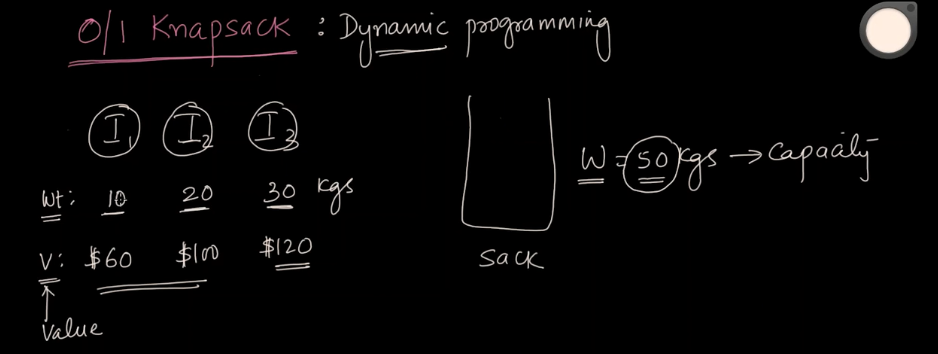 0/1 Knapsack : Dynamic programming
I1 I2 I3
Wt: 10 20 30 kgs
V: $60 $100 $120
Value
W = 50 kgs → Capacity
Sack